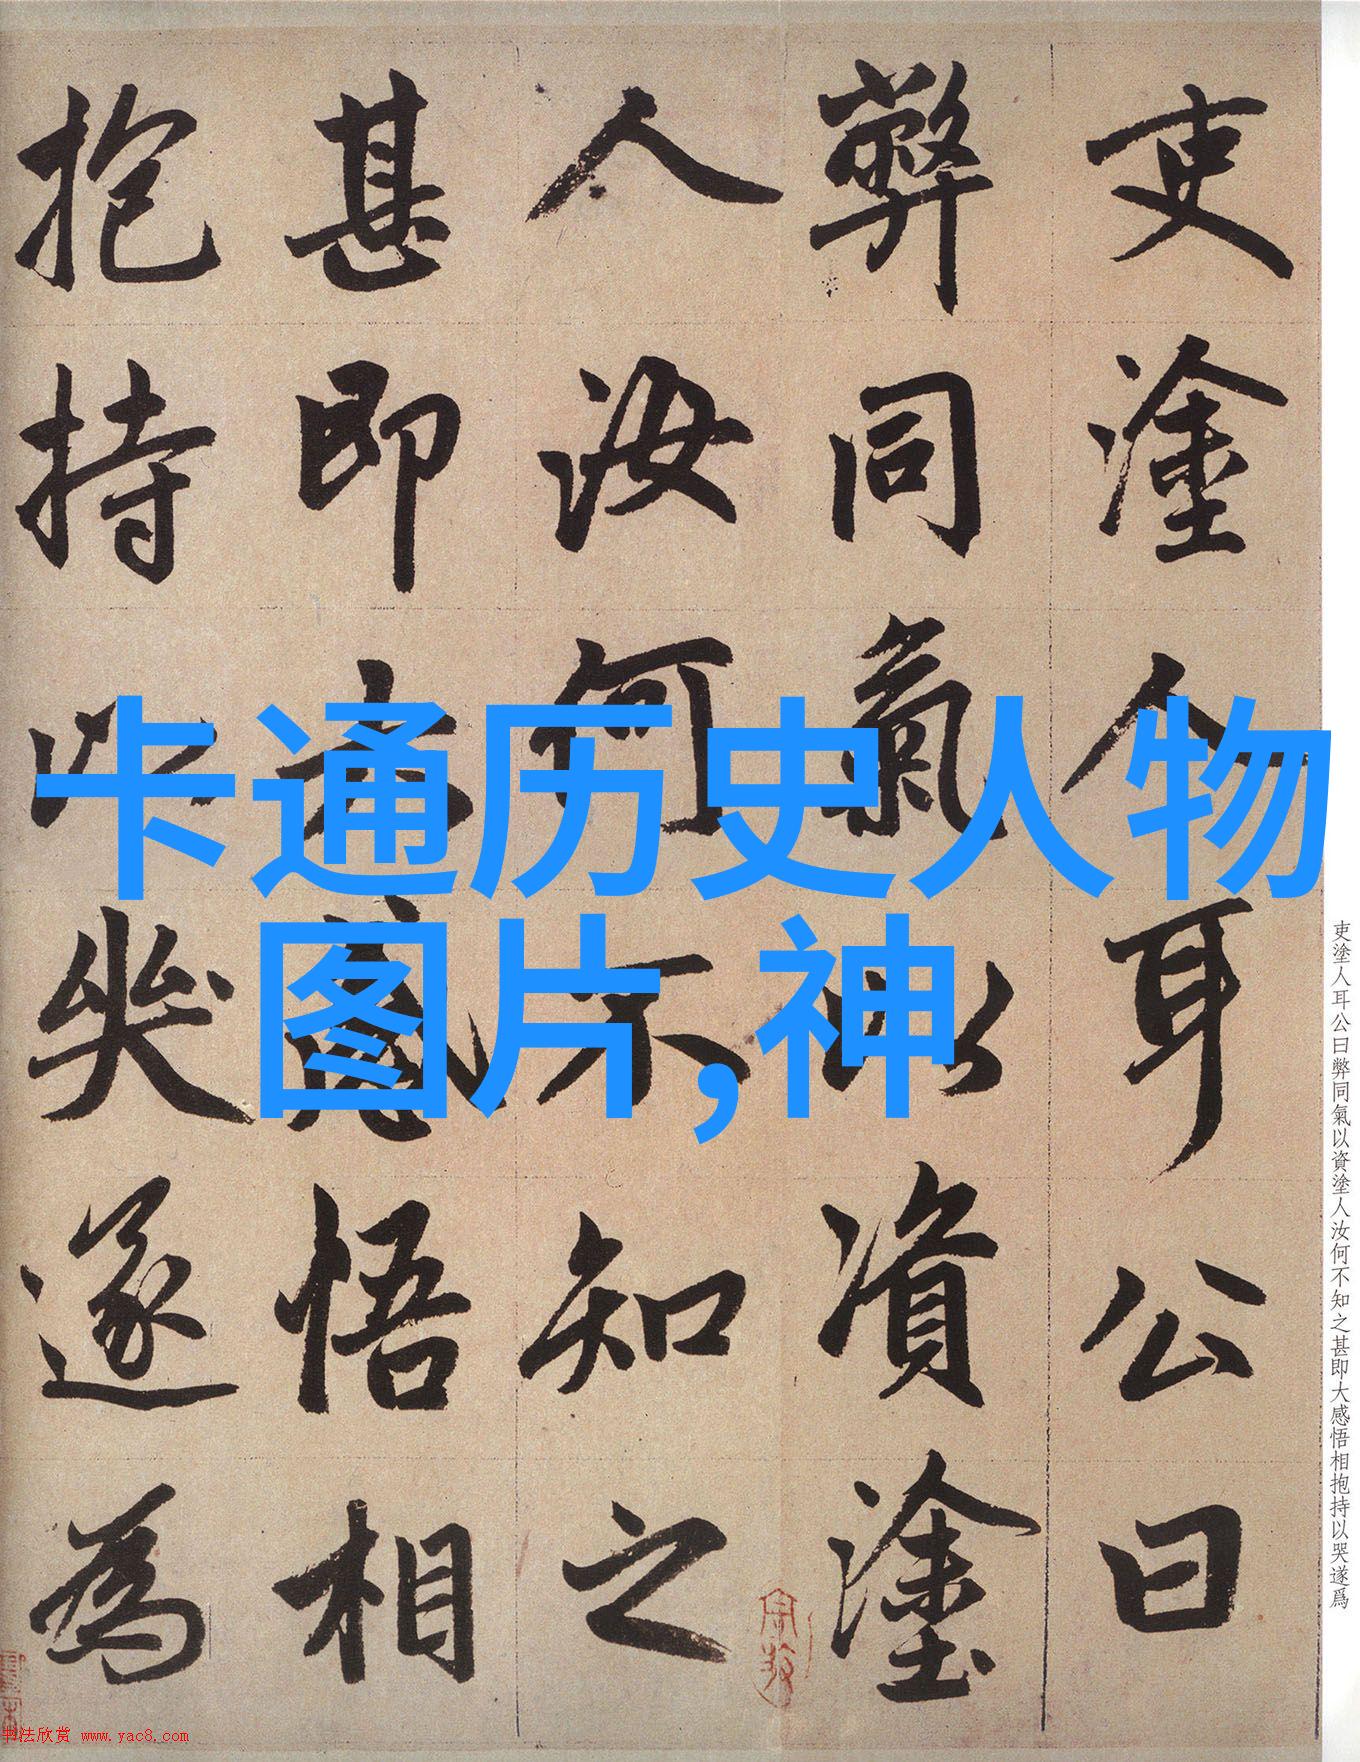 吏塗人耳公曰
弊同氣以資塗
人汝何不知之
甚即大感悟相
抱持以哭遂為
卡通历史人物
图片,神
吏塗人耳公曰弊同氣以資塗人汝何不知之甚即大感悟相抱持以哭遂爲
书法欣赏 www.yac8.com